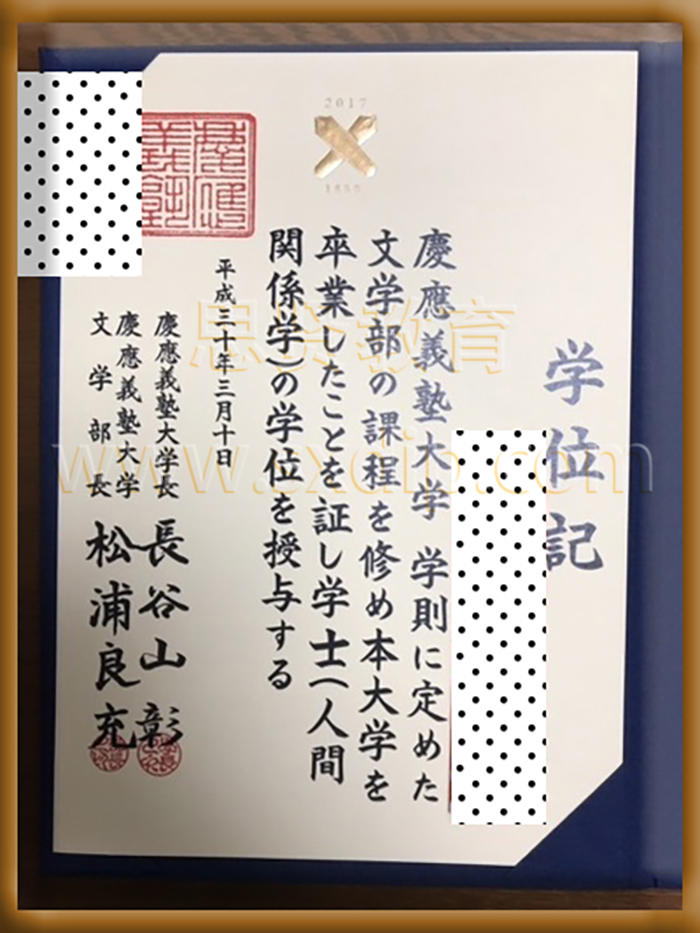 学位記
慶應義塾大学 学則に定めた
文学部の課程を修め本大学を
卒業したことを証し学士(人間
関係学)の学位を授与する
平成三十年三月十日
慶應義塾大学長 長谷山 彰
慶應義塾大学
文学部長 松浦良充
2017
1858
慶應
義塾
教育
www.sxdip.com